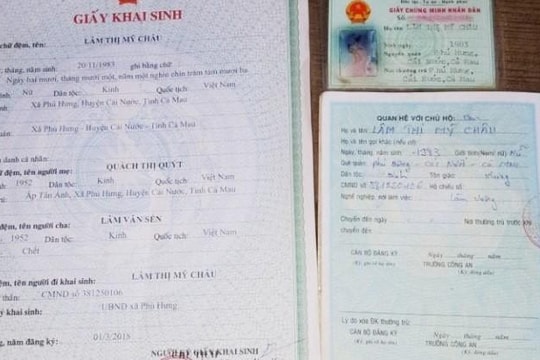 GIẤY KHAI SINH
chữ đệm, tên: LÂM THỊ MỸ CHÂU
tháng, năm sinh: 20/11/1983 ghi bằng chữ
Ngày hai mươi, tháng mười một, năm một nghìn chín trăm tám mươi ba
Nữ Dân tộc: Kinh Quốc tịch: Việt Nam
Xã Phú Hưng, Huyện Cái Nước, Tỉnh Cà Mau
Xã Phú Hưng - Huyện Cái Nước - Tỉnh Cà Mau
danh cá nhân:
đệm, tên người mẹ: QUÁCH THỊ QUÝT
1952 Dân tộc: Kinh Quốc tịch: Việt Nam
Ấp Tân Anh, Xã Phú Hưng, Huyện Cái Nước, Tỉnh Cà Mau
đệm, tên người cha: LÂM VĂN SEN
1952 Dân tộc: Kinh Quốc tịch: Việt Nam
Chết
đệm, tên người đi khai sinh: LÂM THỊ MỸ CHÂU
thân: CMND số 381250106
ký khai sinh: UBND xã Phú Hưng
năm đăng ký: 01/3/2015
NGƯỜI KÝ KHAI SINH
GIẤY CHỨNG MINH NHÂN DÂN
Họ tên LÂM THỊ MỸ CHÂU
Sinh ngày 1983
Phú Hưng,
Cái Nước, Cà Mau
Nơi thường trú Phú Hưng,
Cái Nước, Cà Mau
QUAN HỆ VỚI CHỦ HỘ:
Họ và tên: LÂM THỊ MỸ CHÂU
Họ và tên gọi khác (nếu có):
Ngày, tháng, năm sinh: 1983 Giới tính: Nữ
Quê quán: Phú Hưng - Cái Nước - Cà Mau
Dân tộc: Kinh Tôn giáo: Không
CMND số: 381250106 Hộ chiếu số:
Nghề nghiệp, nơi làm việc: Làm
Chuyển đến ngày
Nơi thường trú trước khi
chuyển đến:
CÁN BỘ ĐĂNG KÝ
(Ký, ghi rõ họ tên)
Ngày tháng năm
TRƯỞNG CÔNG AN
(Ký, đóng dấu)
Lý do xóa ĐK thường trú:
CÁN BỘ ĐĂNG KÝ
(Ký, ghi rõ họ tên)
Ngày tháng năm
TRƯỞNG CÔNG AN
(Ký, đóng dấu)